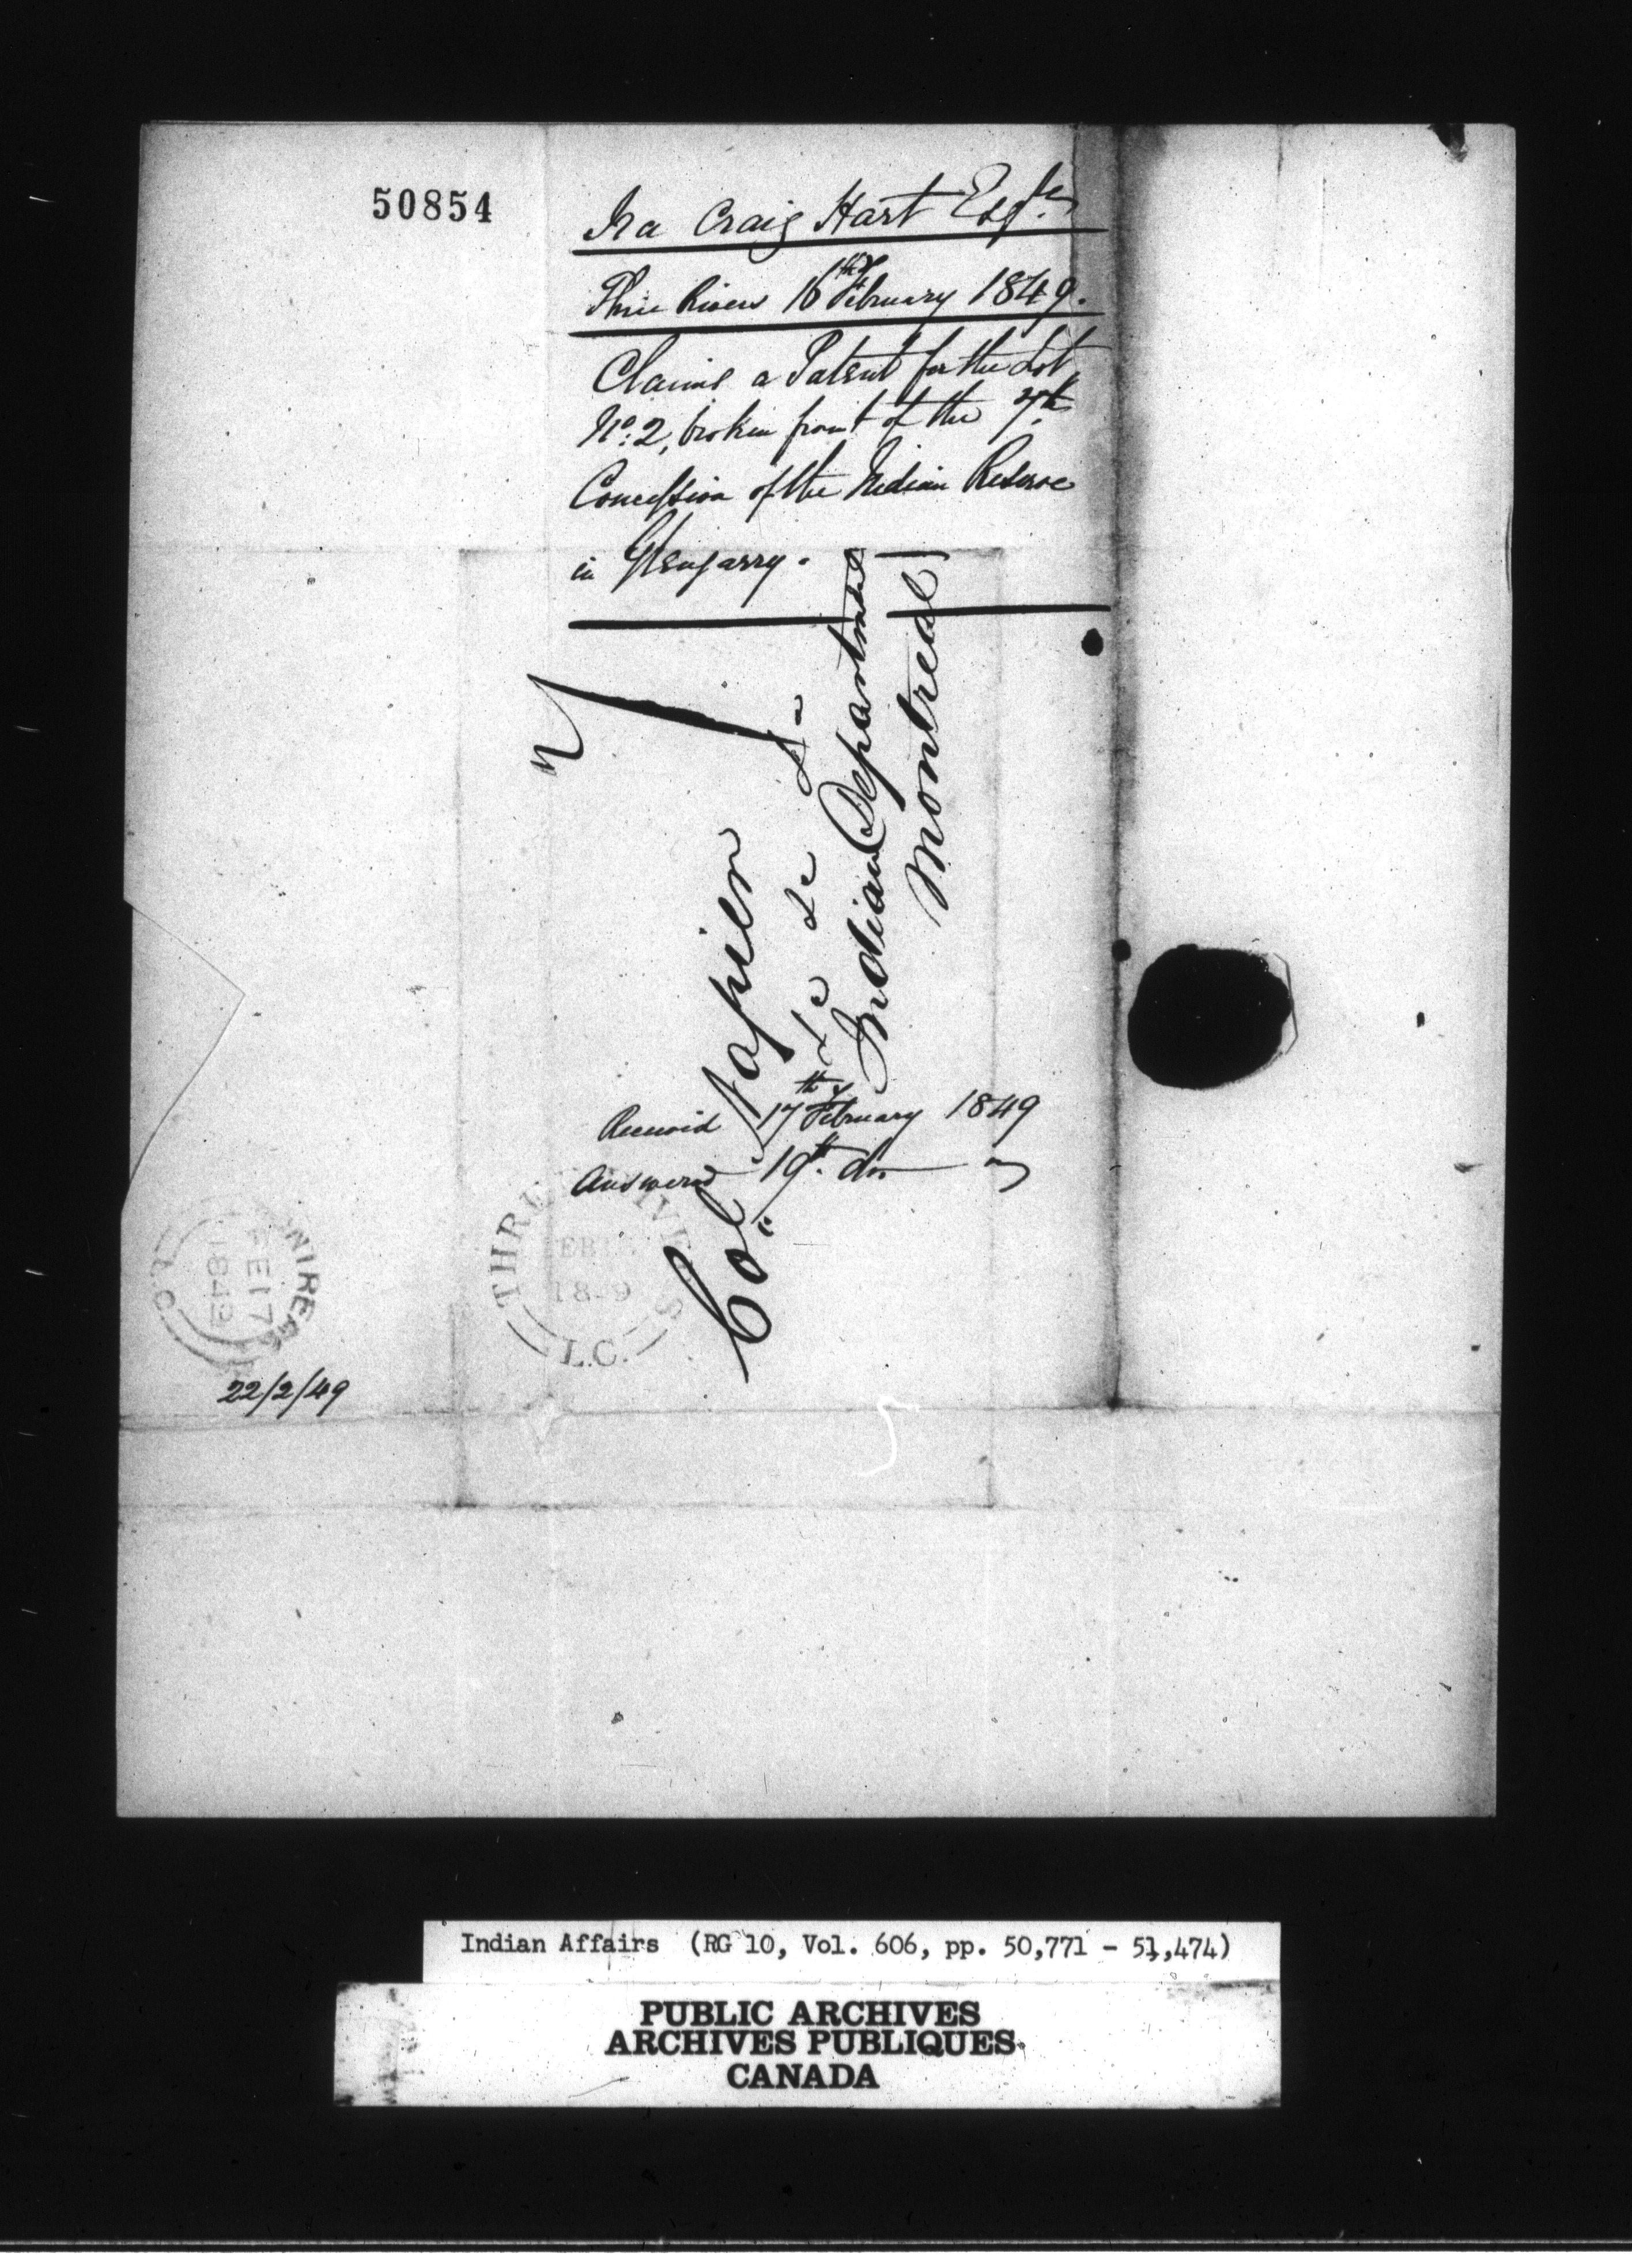 50854
Ira Craig Hart Esqre
Three Rivers 16th February 1849.
Claims a Patent for the Lot
No: 2, broken front of the 7th
Concession of the Indian Reserve
in Glengarry.
Col Napier
&c &c &c
Indian Department
Montreal
Received 17th February 1849
Answered 19th do
THREE RIVERS
FEB 16
1849
L.C.
MONTREAL
FE 17
1849
L.C
22/2/49
5
Indian Affairs (RG 10, Vol. 606, pp. 50,771 - 51,474)
PUBLIC ARCHIVES
ARCHIVES PUBLIQUES
CANADA